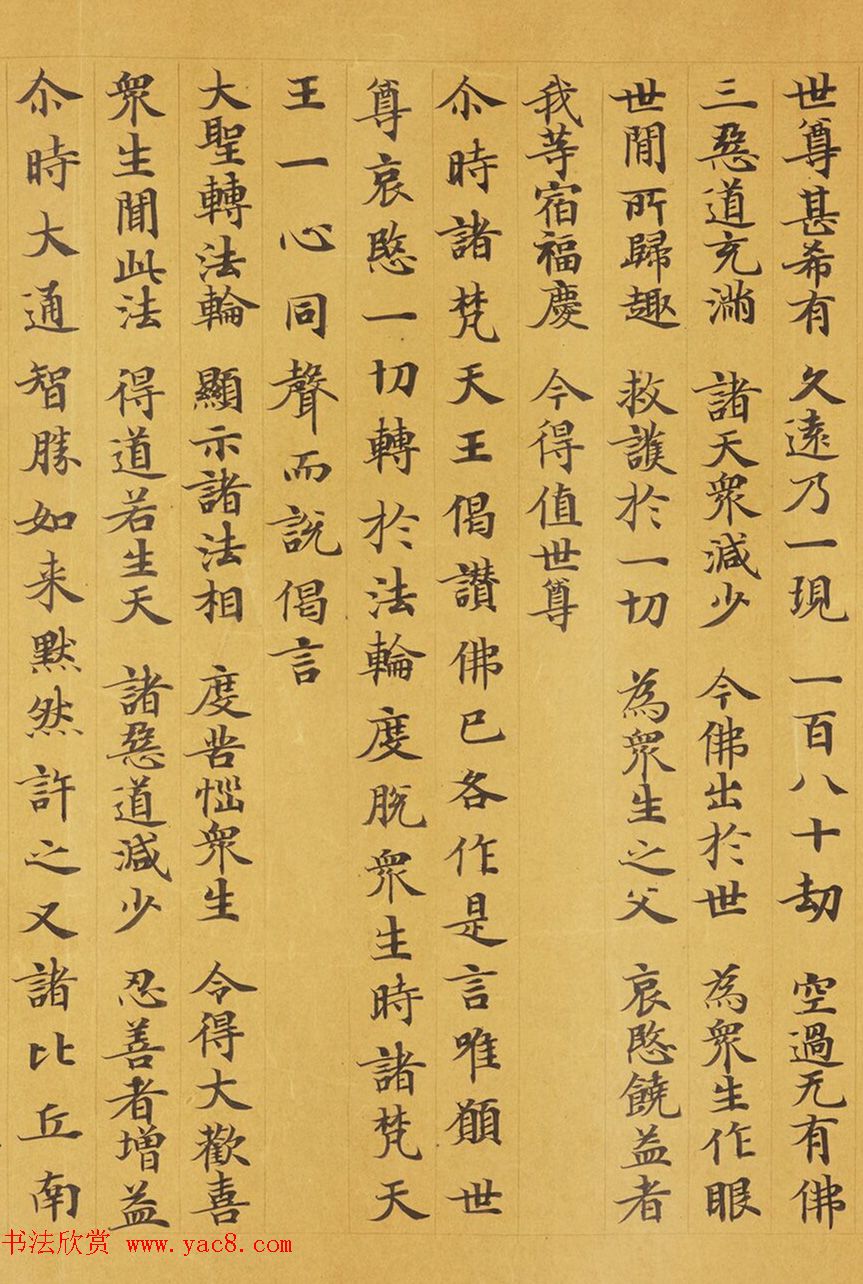 世尊甚希有 久遠乃一現 一百八十劫 空過无有佛
三惡道充滿 諸天衆減少 今佛出於世 為衆生作眼
世間所歸趣 救護於一切 為衆生之父 哀愍饒益者
我等宿福慶 今得值世尊
尒時諸梵天王偈讃佛已各作是言唯願世
尊哀愍一切轉於法輪度脫衆生時諸梵天
王一心同聲而說偈言
大聖轉法輪 顯示諸法相 度苦惱衆生 令得大歡喜
衆生聞此法 得道若生天 諸惡道減少 忍善者增益
尒時大通智勝如来默然許之又諸比丘南
书法欣赏 www.yac8.com